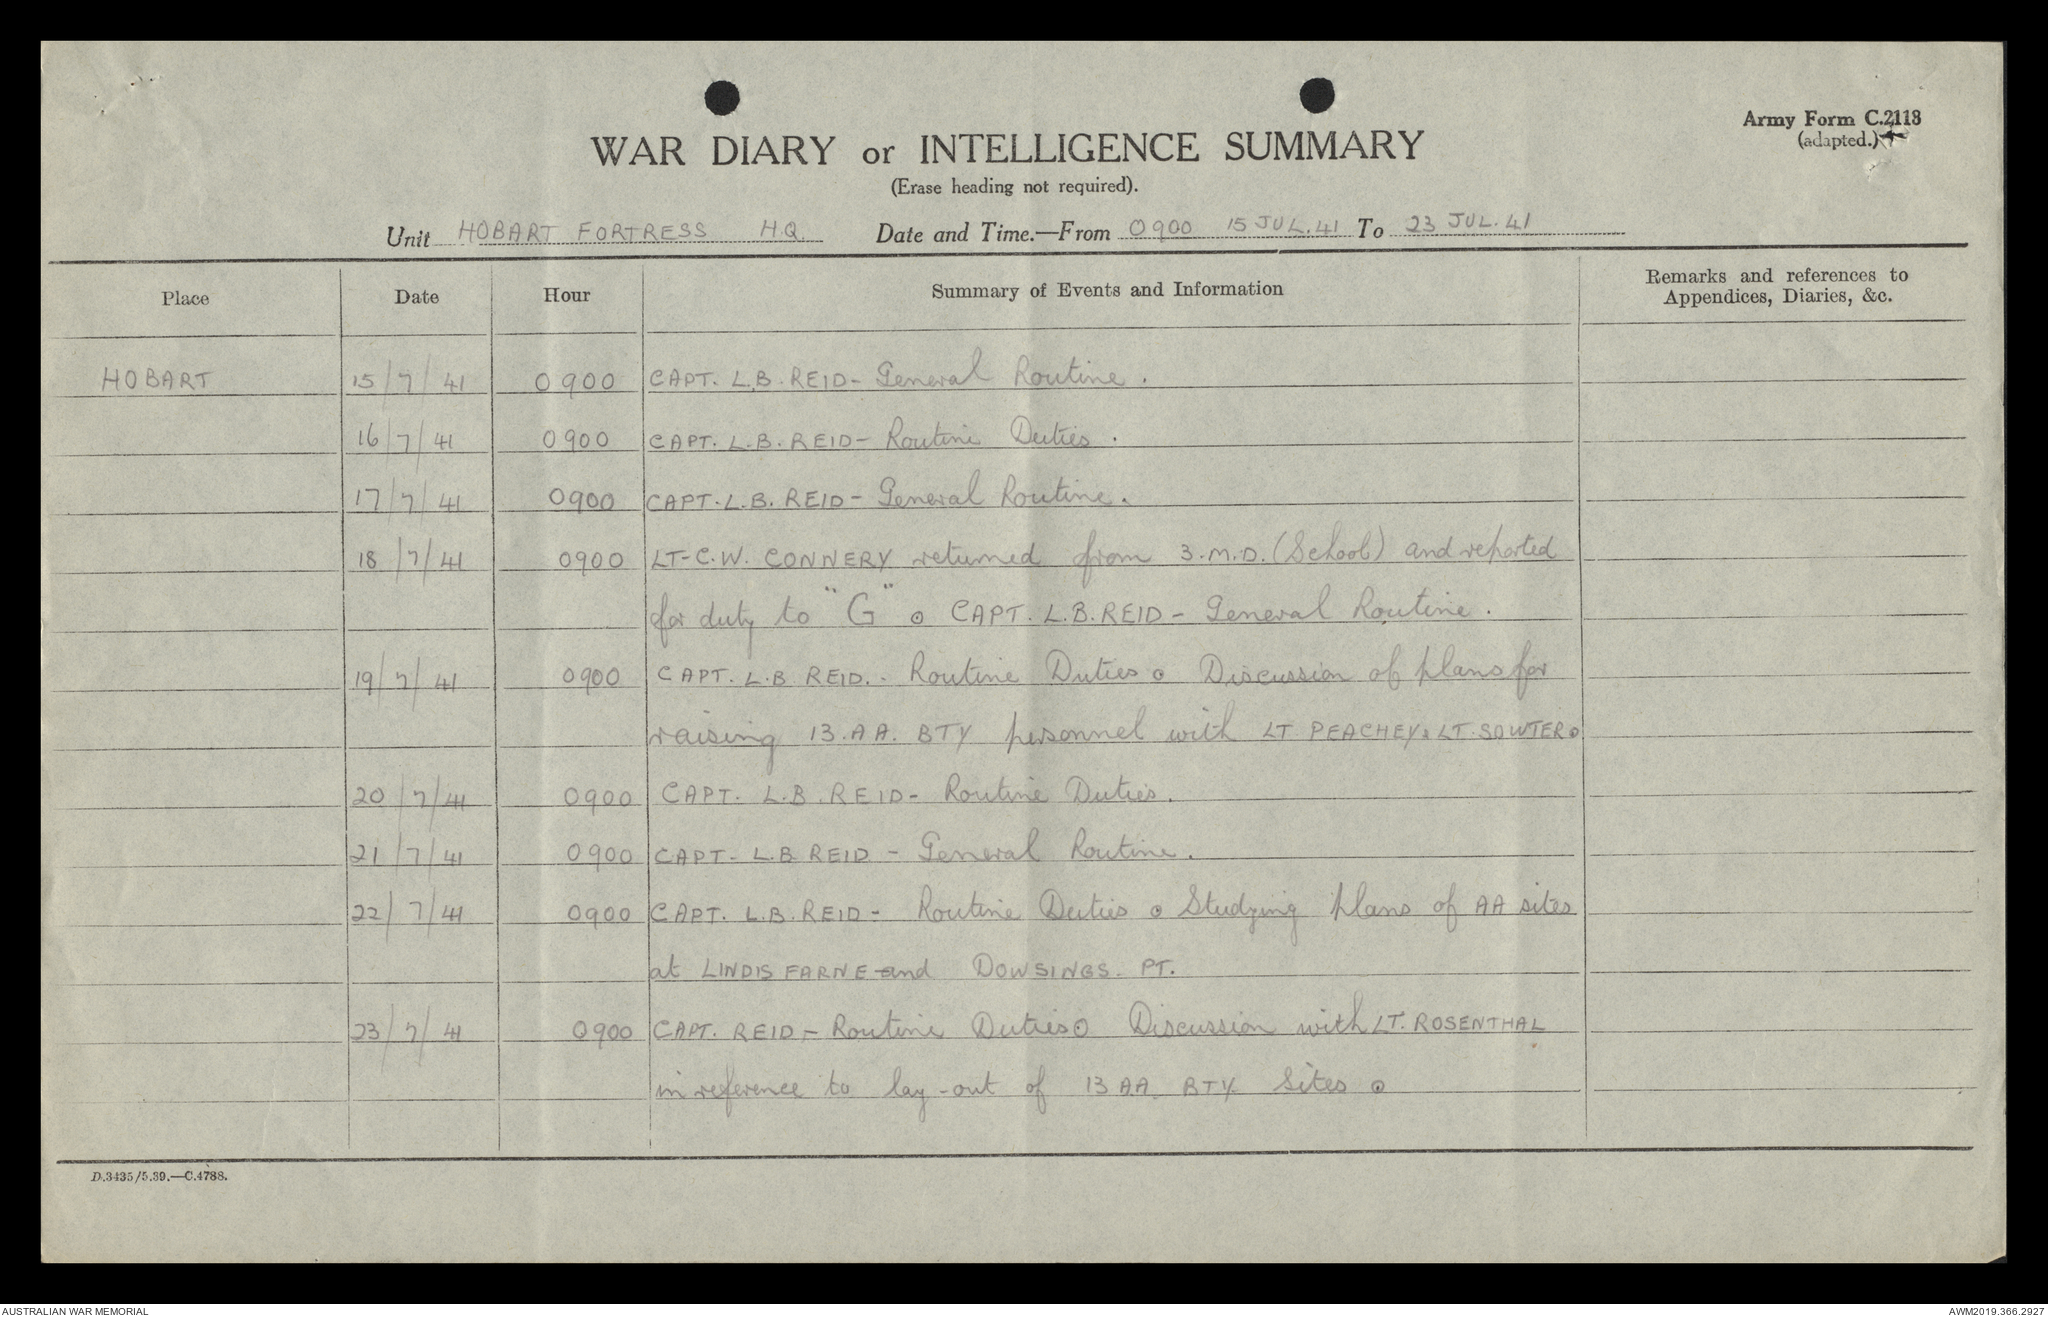 Army Form C.2118
(adapted.)
WAR DIARY or INTELLIGENCE SUMMARY
(Erase heading not required).
Unit HOBART FORTRESS H.Q. Date and Time.—From 0900 15 JUL. 41 To 23 JUL. 41
Place Date Hour Summary of Events and Information Remarks and references to
Appendices, Diaries, &c.
HOBART 15/7/41 0900 CAPT. L.B. REID - General Routine.
16/7/41 0900 CAPT. L.B. REID - Routine Duties.
17/7/41 0900 CAPT. L.B. REID - General Routine.
18/7/41 0900 LT- C.W. CONNERY returned from 3.M.D. (School) and reported
for duty to "G". CAPT. L.B. REID - General Routine.
19/7/41 0900 CAPT. L.B REID. - Routine Duties. Discussion of plans for
raising 13.AA. BTY personnel with LT PEACHEY & LT. SAWTER.
20/7/41 0900 CAPT. L.B. REID - Routine Duties.
21/7/41 0900 CAPT- L.B REID - General Routine.
22/7/41 0900 CAPT. L.B. REID - Routine Duties. Studying plans of AA sites
at LINDISFARNE and DOWSINGS PT.
23/7/41 0900 CAPT. REID - Routine Duties. Discussion with LT. ROSENTHAL
in reference to lay-out of 13 AA BTY Sites.
D.3435/5.39.—C.4788.
AUSTRALIAN WAR MEMORIAL
AWM2019.366.2927